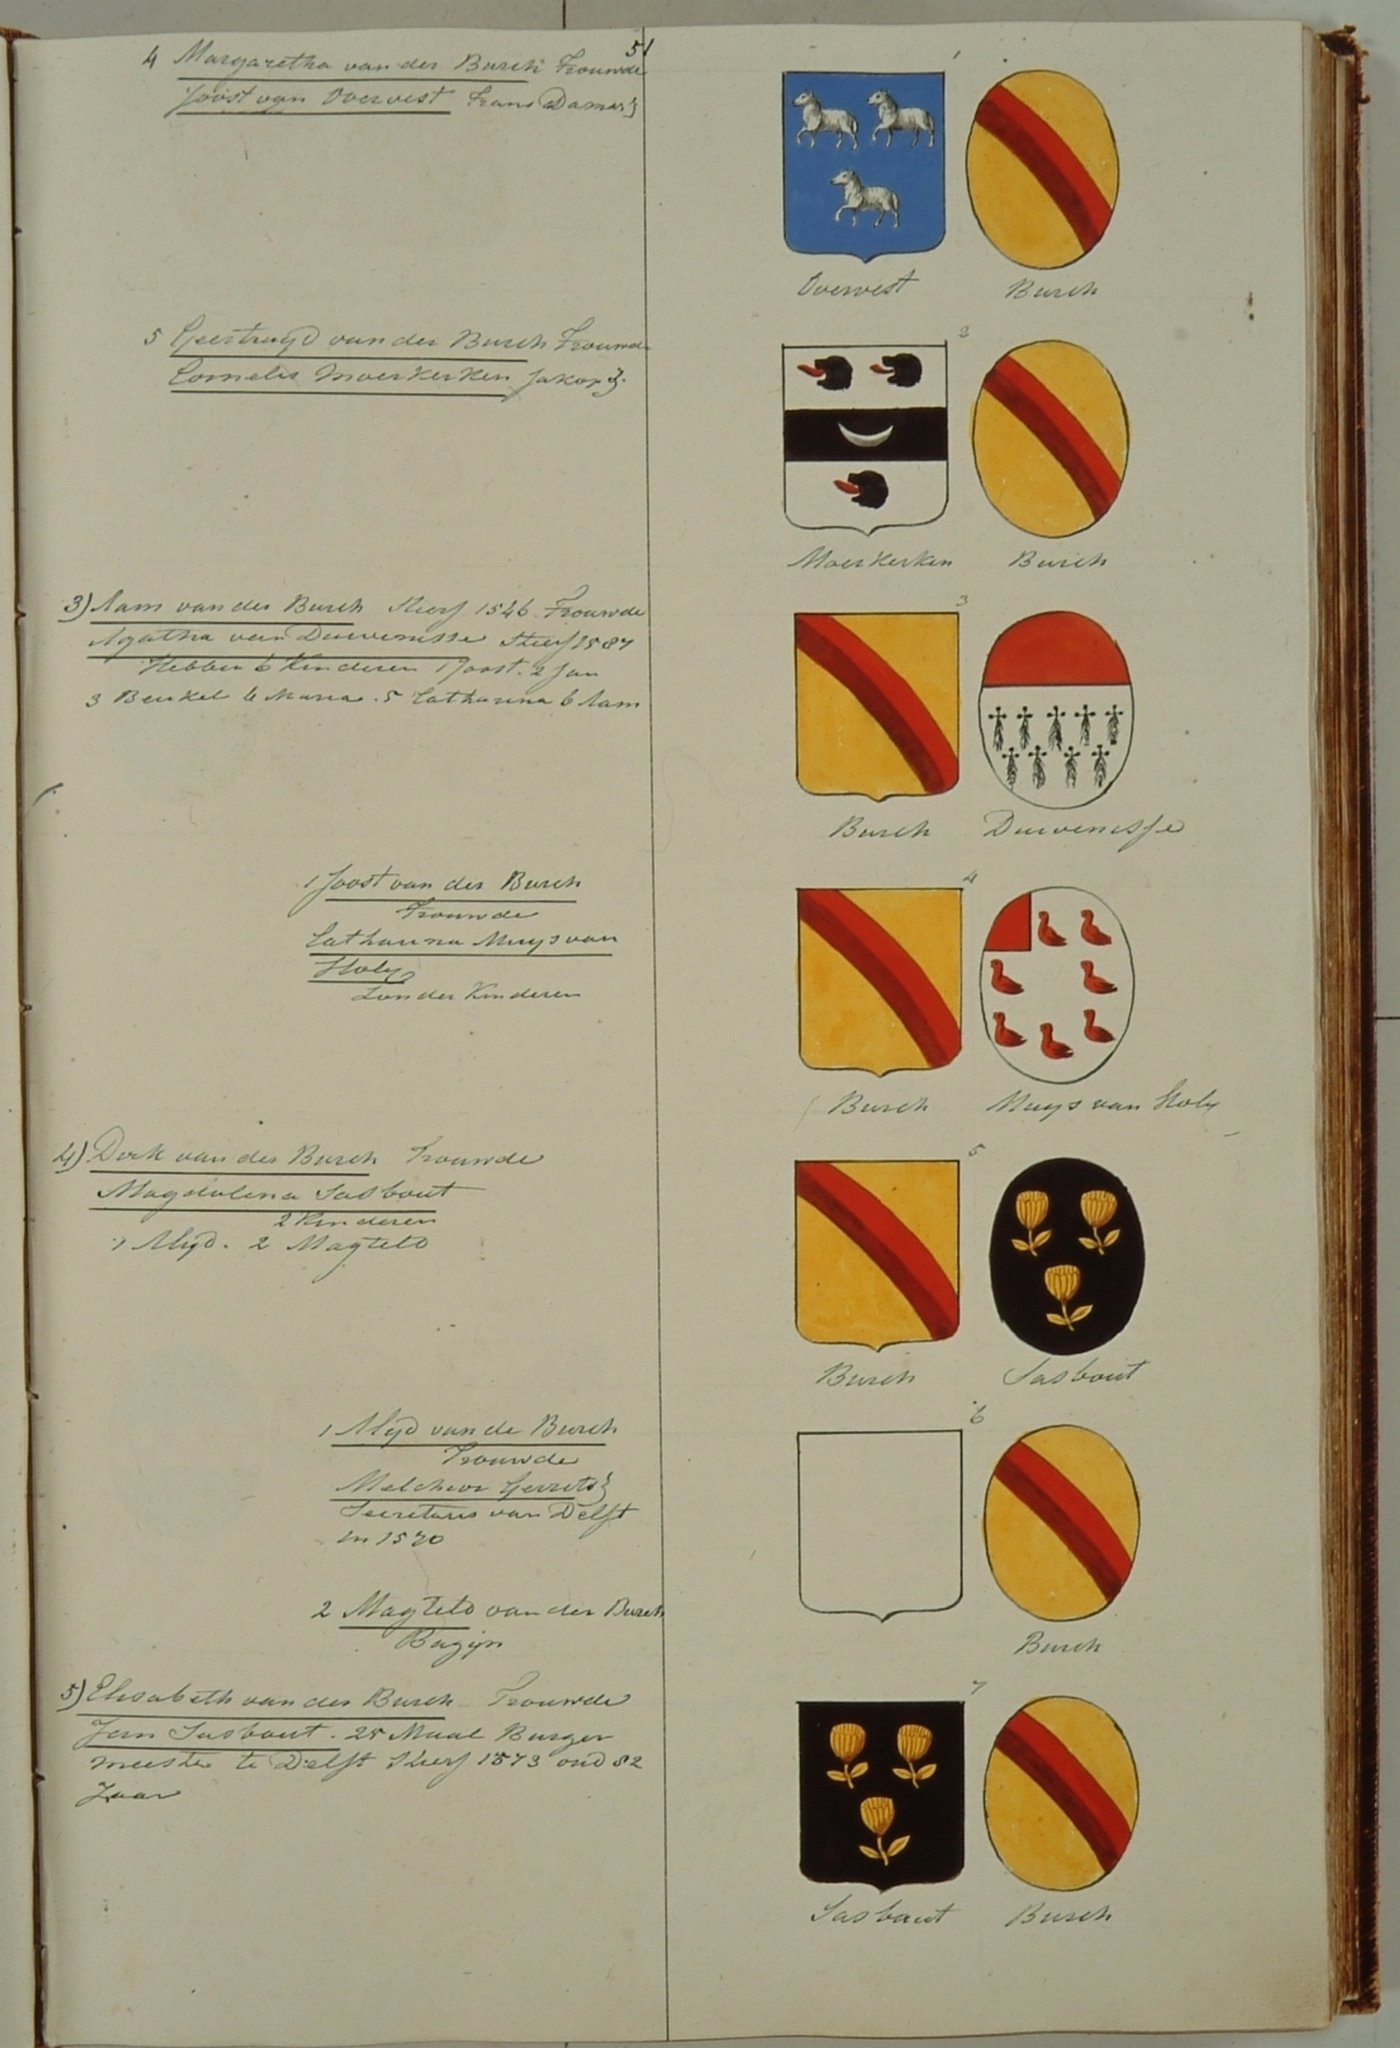 51
4 Margaretha van der Burch Trouwde
Joost van Overvest Frans Damasz
1
Overvest Burch
5 Geertruyd van der Burch Trouwde
Cornelis Moerkerken Jakopz.
2
Moerkerken Burch
3) Aam van der Burch Stierf 1546 Trouwde
Agatha van Duivenisse Stierf 1587
Hebben 6 Kinderen 1 Joost. 2 Jan
3 Beukel 4 Maria. 5 Catharina 6 Aam
3
Burch Duivenisse
1 Joost van der Burch
Trouwde
Catharina Muys van
Holy
Zonder Kinderen
4
Burch Muys van Holy
4) Dirk van der Burch Trouwde
Magdalena Sasbout
2 Kinderen
1 Alyd. 2 Magteld
5
Burch Sasbout
1 Alyd van de Burch
Trouwde
Melchior Gerritsz
Secretaris van Delft
in 1570
6
2 Magteld van der Burch
Bagijn
Burch
5) Elisabeth van der Burch Trouwde
Jan Sasbout. 25 Maal Burger
meester te Delft Stierf 1573 oud 82
Jaar
7
Sasbout Burch